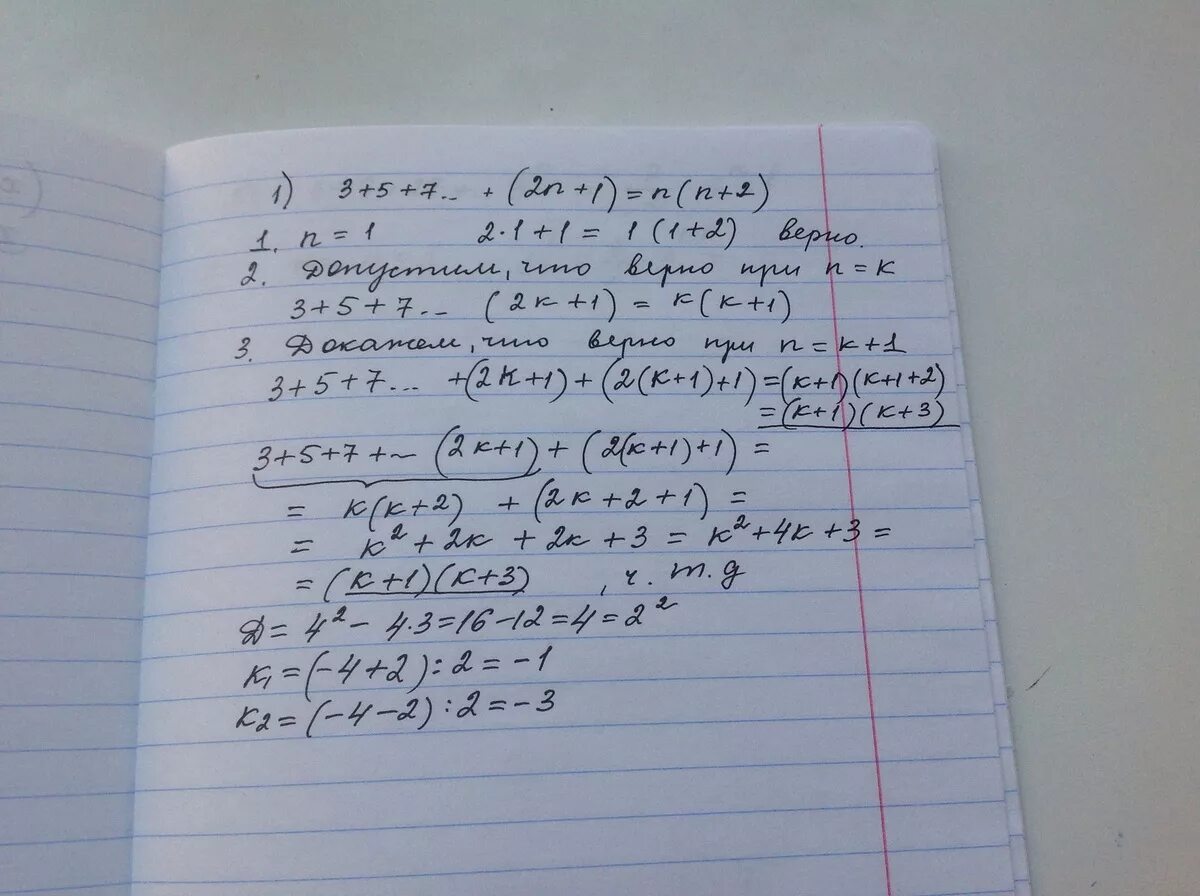 1) 3+5+7.. + (2n+1) = n(n+2)
1. n = 1 2·1+1 = 1(1+2) верно.
2. Допустим, что верно при n = k
3+5+7.. (2k+1) = k(k+1)
3. Докажем, что верно при n = k+1
3+5+7... +(2k+1)+(2(k+1)+1) =(k+1)(k+1+2)
=(k+1)(k+3)
3+5+7+~ (2k+1)+(2(k+1)+1) =
= k(k+2) +(2k+2+1) =
= k²+2k+2k+3 = k²+4k+3 =
=(k+1)(k+3) , ч. т. д
Д= 4²- 4·3=16-12=4=2²
k₁=(-4+2):2=-1
k₂=(-4-2):2=-3